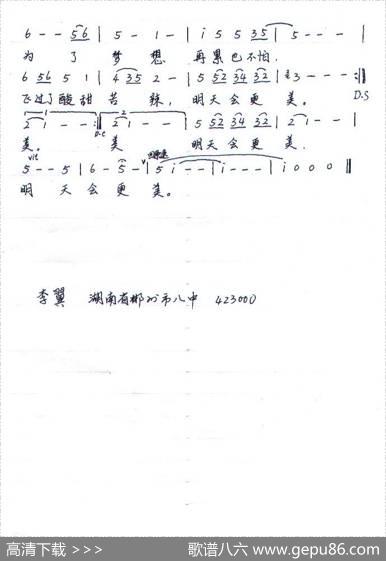 6 - - 56 | 5 - 1 - | i 5 5 35 | 5 - - - |
为 了 梦 想 再累也不怕.
6 56 5 1 | 4 35 2 - | 5 52 34 32 | 3 - - - :||
飞过了酸甜 苦 辣, 明天会更 美。 D.S
1 2
2 i - - :|| 2 i - - | 5 52 34 32 | 2 i - - |
D.C
美。 美 明天会更 美.
rit
5 - - 5 | 6 - 5 - | 5 i - - | i - - - | i 0 0 0 ||
明 天 会 更 美。
李翼 湖南省郴州市八中 423000
高清下载 >>> 歌谱八六 www.gepu86.com